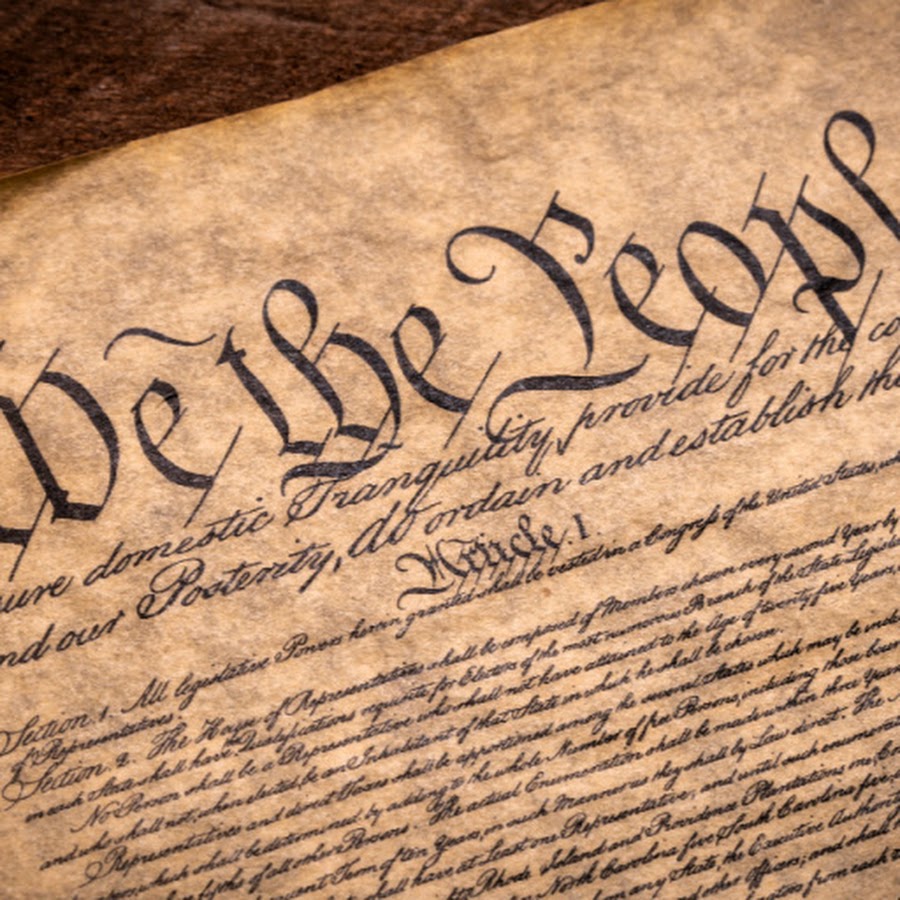 We the Peopl
ure domestic Tranquility, provide for the co
nd our Posterity, do ordain and establish thi
Article. I.
Section 1. All legislative Powers herein granted shall be vested in a Congress of the United States, wh
of Representatives.
Section 2. The House of Representatives shall be composed of Members chosen every second Year by
in each State shall have Qualifications requisite for Electors of the most numerous Branch of the State Legisla
No Person shall be a Representative who shall not have attained to the Age of twenty five Years,
and who shall not, when elected, be an Inhabitant of that State in which he shall be chosen.
Representatives and direct Taxes shall be apportioned among the several States which may be inclu
which shall be determined by adding to the whole Number of free Persons, including those boun
of all other Persons. The actual Enumeration shall be made within three Years
Term of ten Years, in such Manner as they shall by Law direct. The
shall have at Least one Representative; and until such enumeration
Rhode Island and Providence Plantations one, C
North Carolina five, South Carolina five,
from any State, the Executive Authori
and other Officers; and shall h